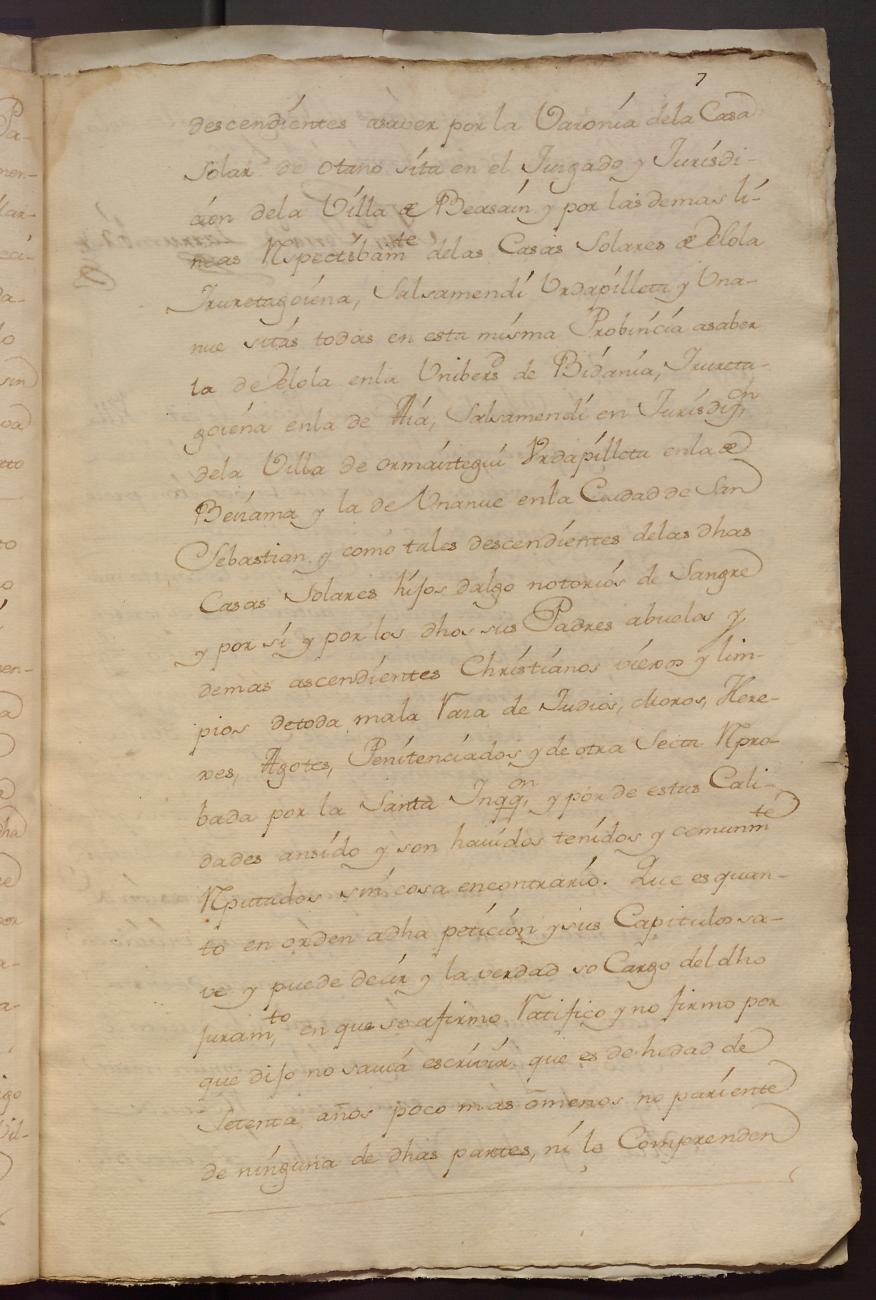 7
descendientes asaver por la Varonia dela Casa
Solar de otano sita en el Juzgado y Jurisdi-
cion dela Villa de Beasain y por las demas li-
neas Rspectibamte delas Casas Solares de Elola
Iruretagoiena, Salsamendi Urdapilleta y Una-
nue sitas todas en esta misma Probincia asaber
la de Elola enla Unibersd de Bidania, Irureta-
goiena enla de Aia, Salsamendi en Jurisdigon
dela Villa de ormaiztegui Urdapilleta enla de
Beizama y la de Unanue enla Ciudad de San
Sebastian y como tales descendientes delas dhas
Casas Solares hijos dalgo notorios de Sangre
y por si y por los dhos sus Padres abuelos y
demas ascendientes Christianos viejos y lim-
pios detoda mala Raza de Judios, Moros, Here-
xes, Agotes, Penitenciados y de otra Secta Rpro-
bada por la Santa Inqqon y por de estas Cali-
dades ansido y son havidos tenidos y comunmte
Rputtados sin cosa encontrario. Que es quan-
to en orden adha peticion y sus Capitulos sa-
ve y puede decir y la verdad so Cargo del dho
Juramto, en que se afirmo Ratifico y no firmo por
que dijo no savia escrivir que es de hedad de
Setenta años poco mas omenos no pariente
de ninguna de dhas partes, ni le Comprenden